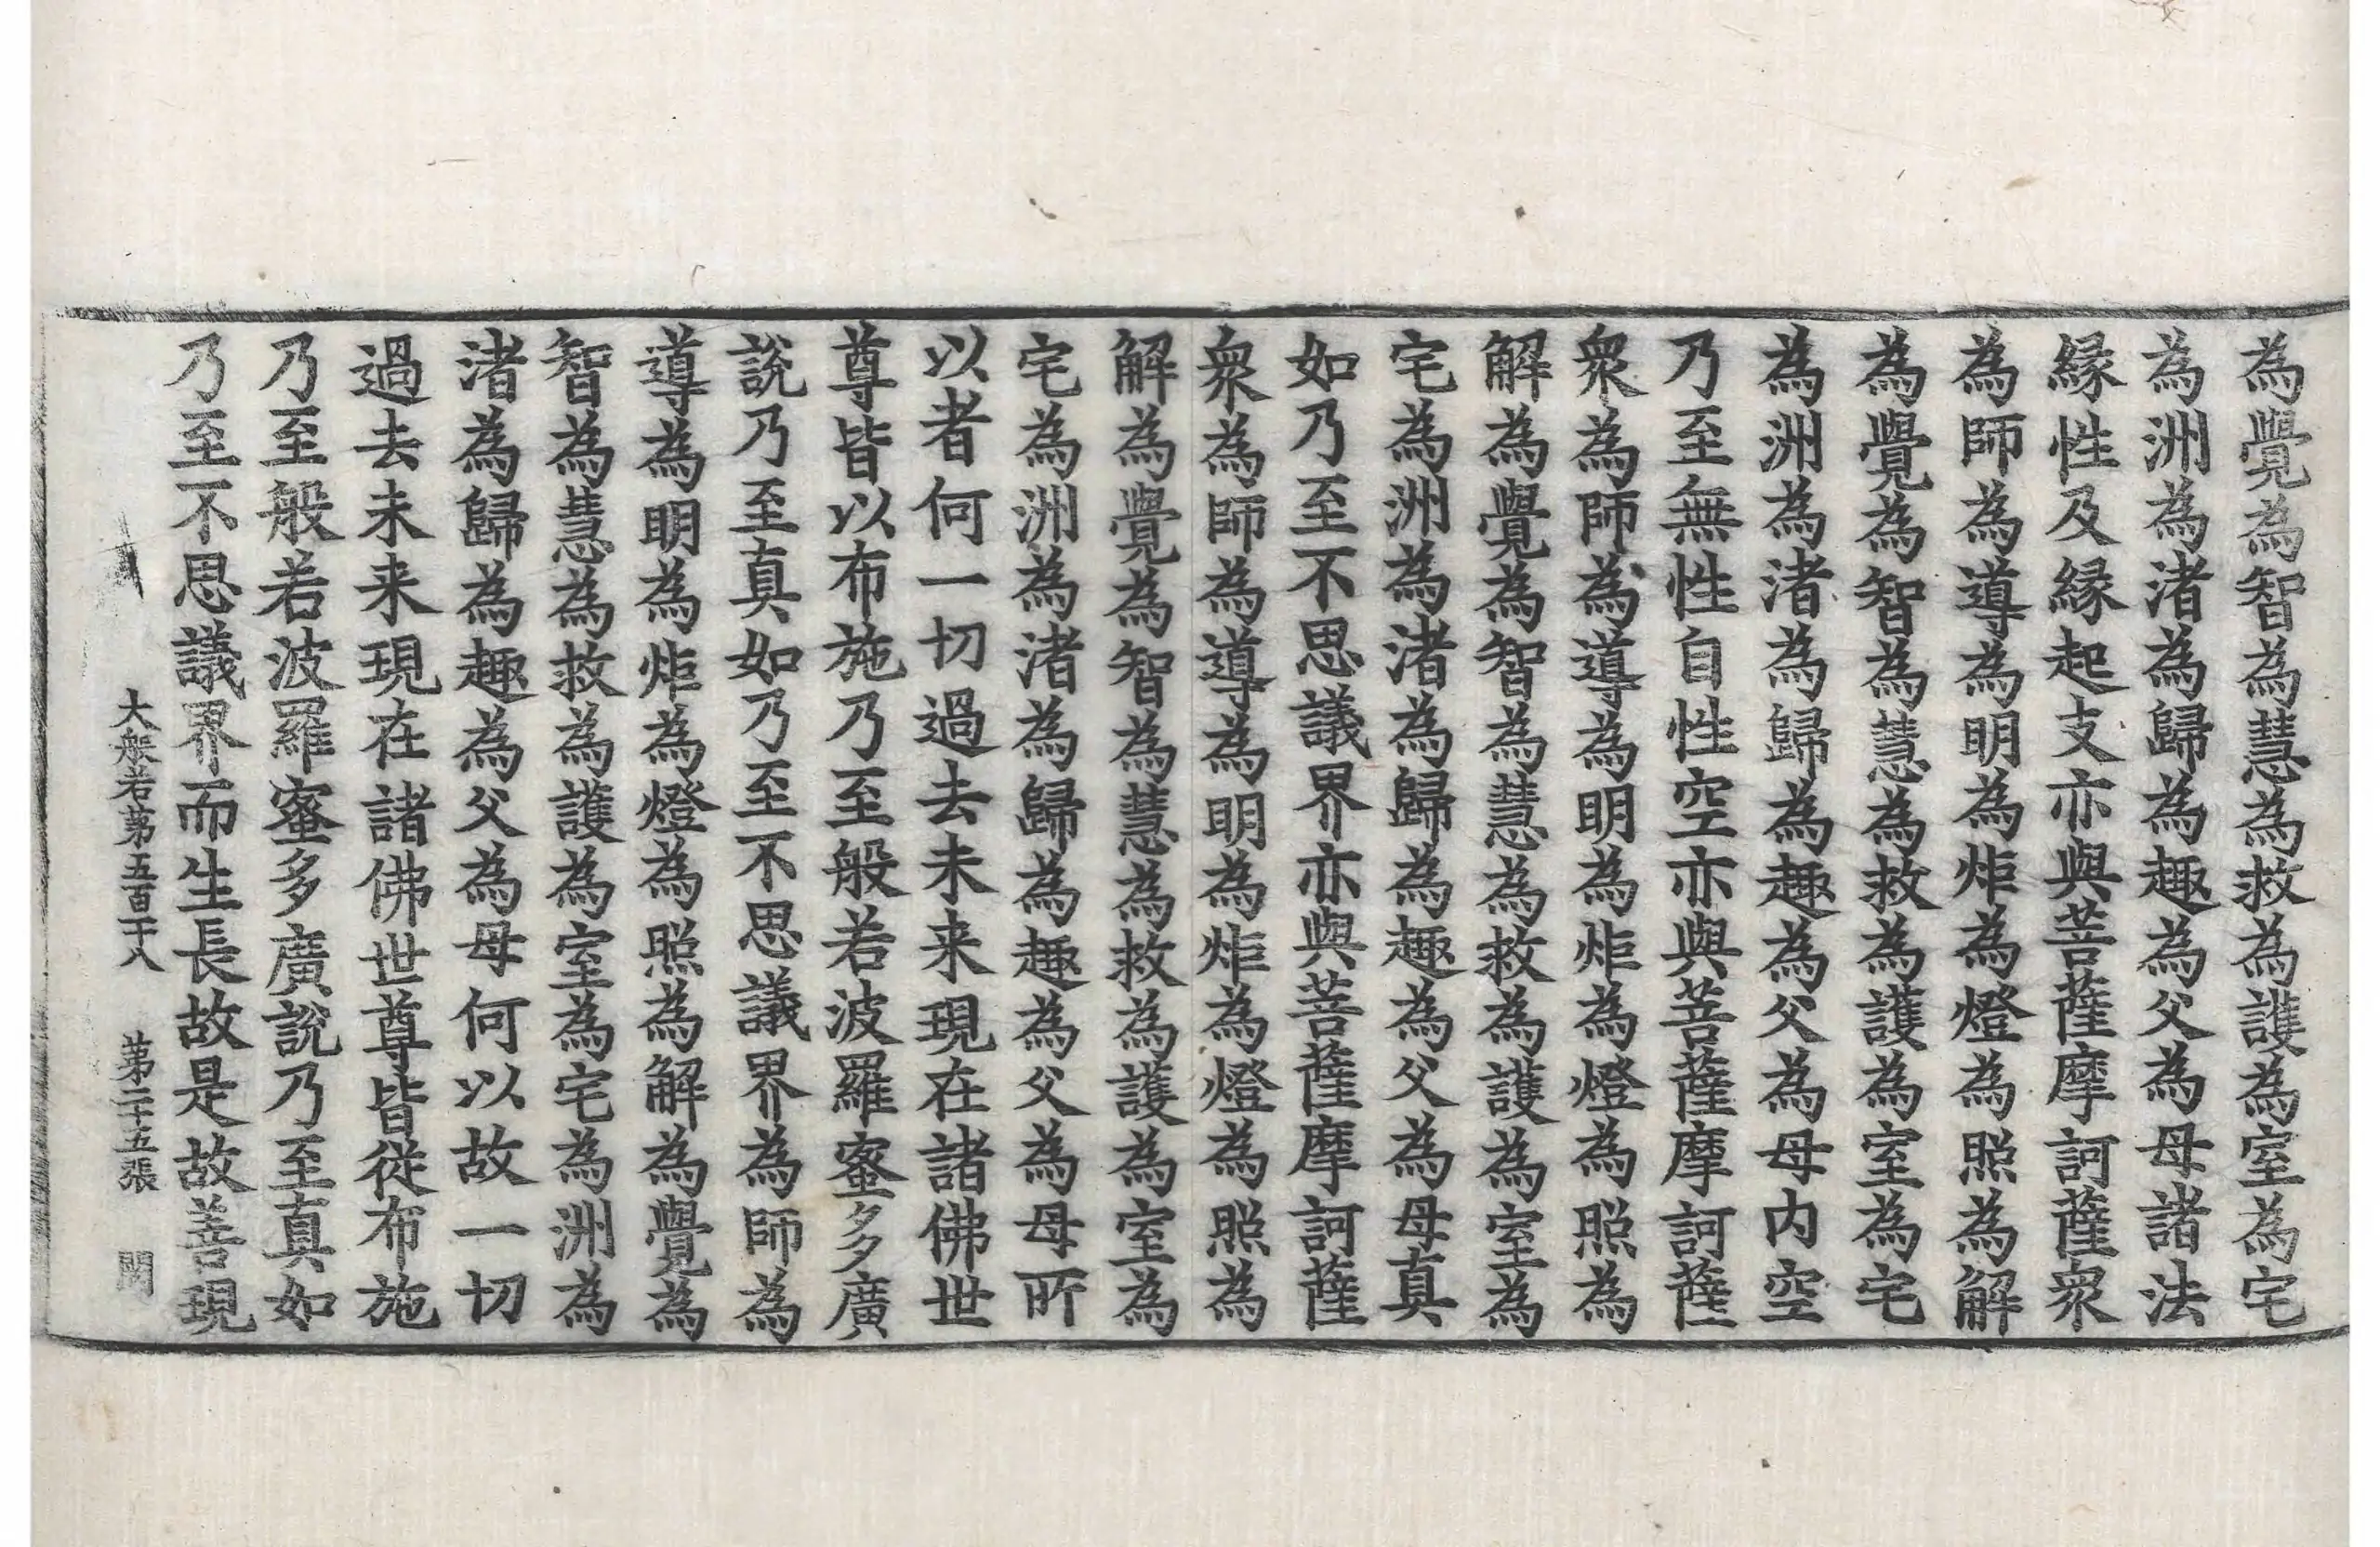 為覺為智為慧為救為護為室為宅
為洲為渚為歸為趣為父為母諸法
緣性及緣起支亦與菩薩摩訶薩衆
為師為導為明為炬為燈為照為解
為覺為智為慧為救為護為室為宅
為洲為渚為歸為趣為父為母内空
乃至無性自性空亦與菩薩摩訶薩
衆為師為導為明為炬為燈為照為
解為覺為智為慧為救為護為室為
宅為洲為渚為歸為趣為父為母真
如乃至不思議界亦與菩薩摩訶薩
衆為師為導為明為炬為燈為照為
解為覺為智為慧為救為護為室為
宅為洲為渚為歸為趣為父為母所
以者何一切過去未来現在諸佛世
尊皆以布施乃至般若波羅蜜多廣
說乃至真如乃至不思議界為師為
導為明為炬為燈為照為解為覺為
智為慧為救為護為室為宅為洲為
渚為歸為趣為父為母何以故一切
過去未来現在諸佛世尊皆從布施
乃至般若波羅蜜多廣說乃至真如
乃至不思議界而生長故是故善現
大般若第五百十八 第二十五張